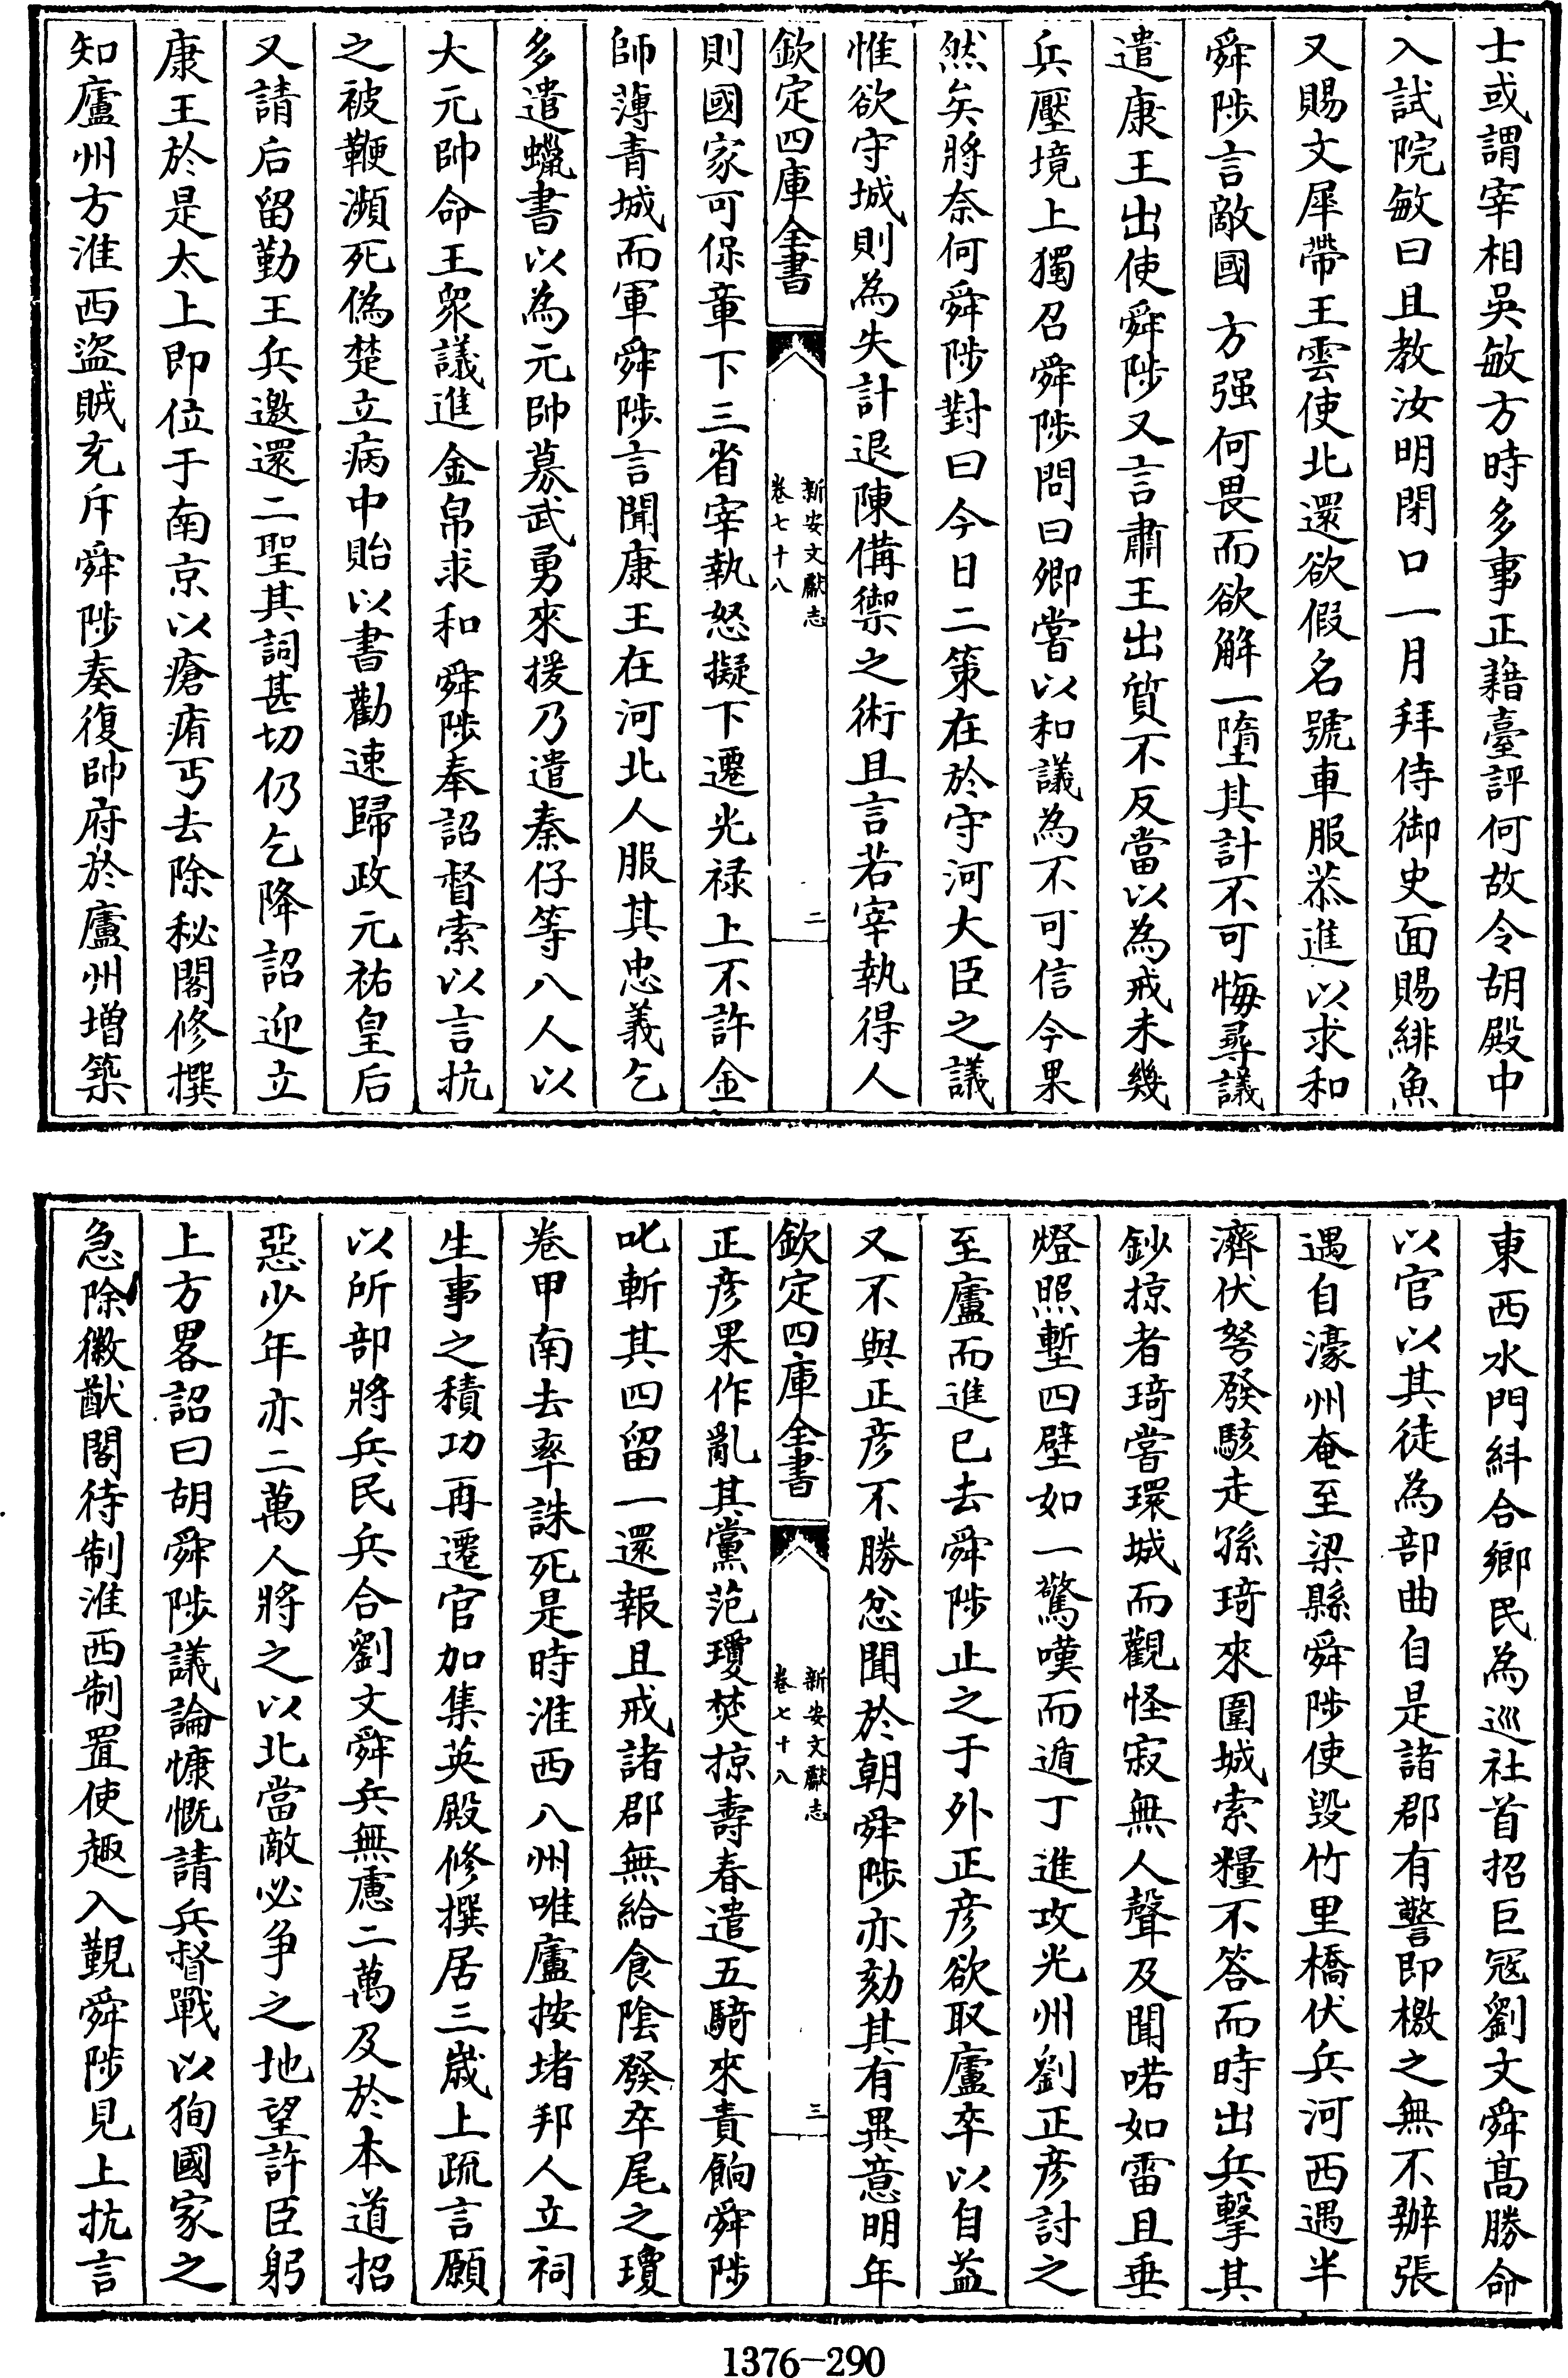 士或謂宰相吳敏方時多事正藉臺評何故令胡殿中
入試院敏曰且教汝明閉口一月拜侍御史面賜緋魚
又賜文犀帶王雲使北還欲假名號車服恭進以求和
舜陟言敵國方强何畏而欲解一墮其計不可悔尋議
遣康王出使舜陟又言肅王出質不反當以為戒未幾
兵壓境上獨召舜陟問曰卿嘗以和議為不可信今果
然矣將奈何舜陟對曰今日二策在於守河大臣之議
惟欲守城則為失計退陳備禦之術且言若宰執得人
欽定四庫全書
新安文獻志
卷七十八
二
則國家可保章下三省宰執怒擬下遷光禄上不許金
師薄青城而軍舜陟言聞康王在河北人服其忠義乞
多遣蠟書以為元帥募武勇來援乃遣秦仔等八人以
大元帥命王衆議進金帛求和舜陟奉詔督索以言抗
之被鞭瀕死偽楚立病中貽以書勸速歸政元祐皇后
又請后留勤王兵邀還二聖其詞甚切仍乞降詔迎立
康王於是太上即位于南京以瘡痏丐去除秘閣修撰
知廬州方淮西盜賊充斥舜陟奏復帥府於廬州增築
東西水門糾合鄉民為巡社首招巨冦劉文舜髙勝命
以官以其徒為部曲自是諸郡有警即檄之無不辦張
遇自濠州奄至梁縣舜陟使毁竹里橋伏兵河西遇半
濟伏弩發駭走孫琦來圍城索糧不答而時出兵擊其
鈔掠者琦嘗環城而觀怪寂無人聲及聞喏如雷且垂
燈照塹四壁如一驚嘆而遁丁進攻光州劉正彦討之
至廬而進已去舜陟止之于外正彦欲取廬卒以自益
又不與正彦不勝忿聞於朝舜陟亦劾其有異意明年
欽定四庫全書
新安文獻志
卷七十八
三
正彦果作亂其黨范瓊焚掠壽春遣五騎來責餉舜陟
叱斬其四留一還報且戒諸郡無給食陰發卒尾之瓊
卷甲南去率誅死是時淮西八州唯廬按堵邦人立祠
生事之積功再遷官加集英殿修撰居三歲上疏言願
以所部將兵民兵合劉文舜兵無慮二萬及於本道招
惡少年亦二萬人將之以北當敵必争之地望許臣躬
上方畧詔曰胡舜陟議論慷慨請兵督戰以狥國家之
急除徽猷閣待制淮西制置使趣入覲舜陟見上抗言
1376-290